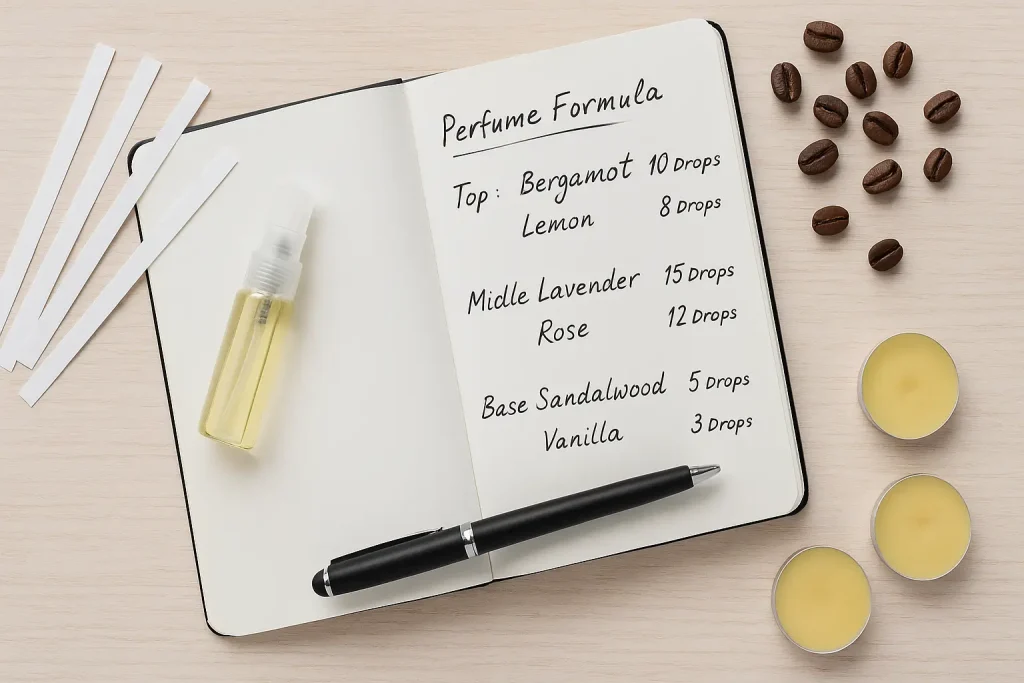 Perfume Formula
Top: Bergamot 10 Drops
Lemon 8 Drops
Midlle Lavender 15 Drops
Rose 12 Drops
Base Sandalwood 5 Drops
Vanilla 3 Drops